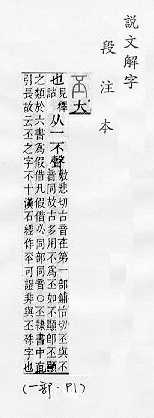 說文解字
段注本
大
也見釋詁从一不聲敷悲切古音在第一部鋪怡切丕與不
音同故古多用不爲丕如不顯卽丕顯
之類於六書爲假借凡假借必同部同音○丕隸書中直
引長故云丕之字不十漢石經作可證非與丕殊字也
(一部·P1)